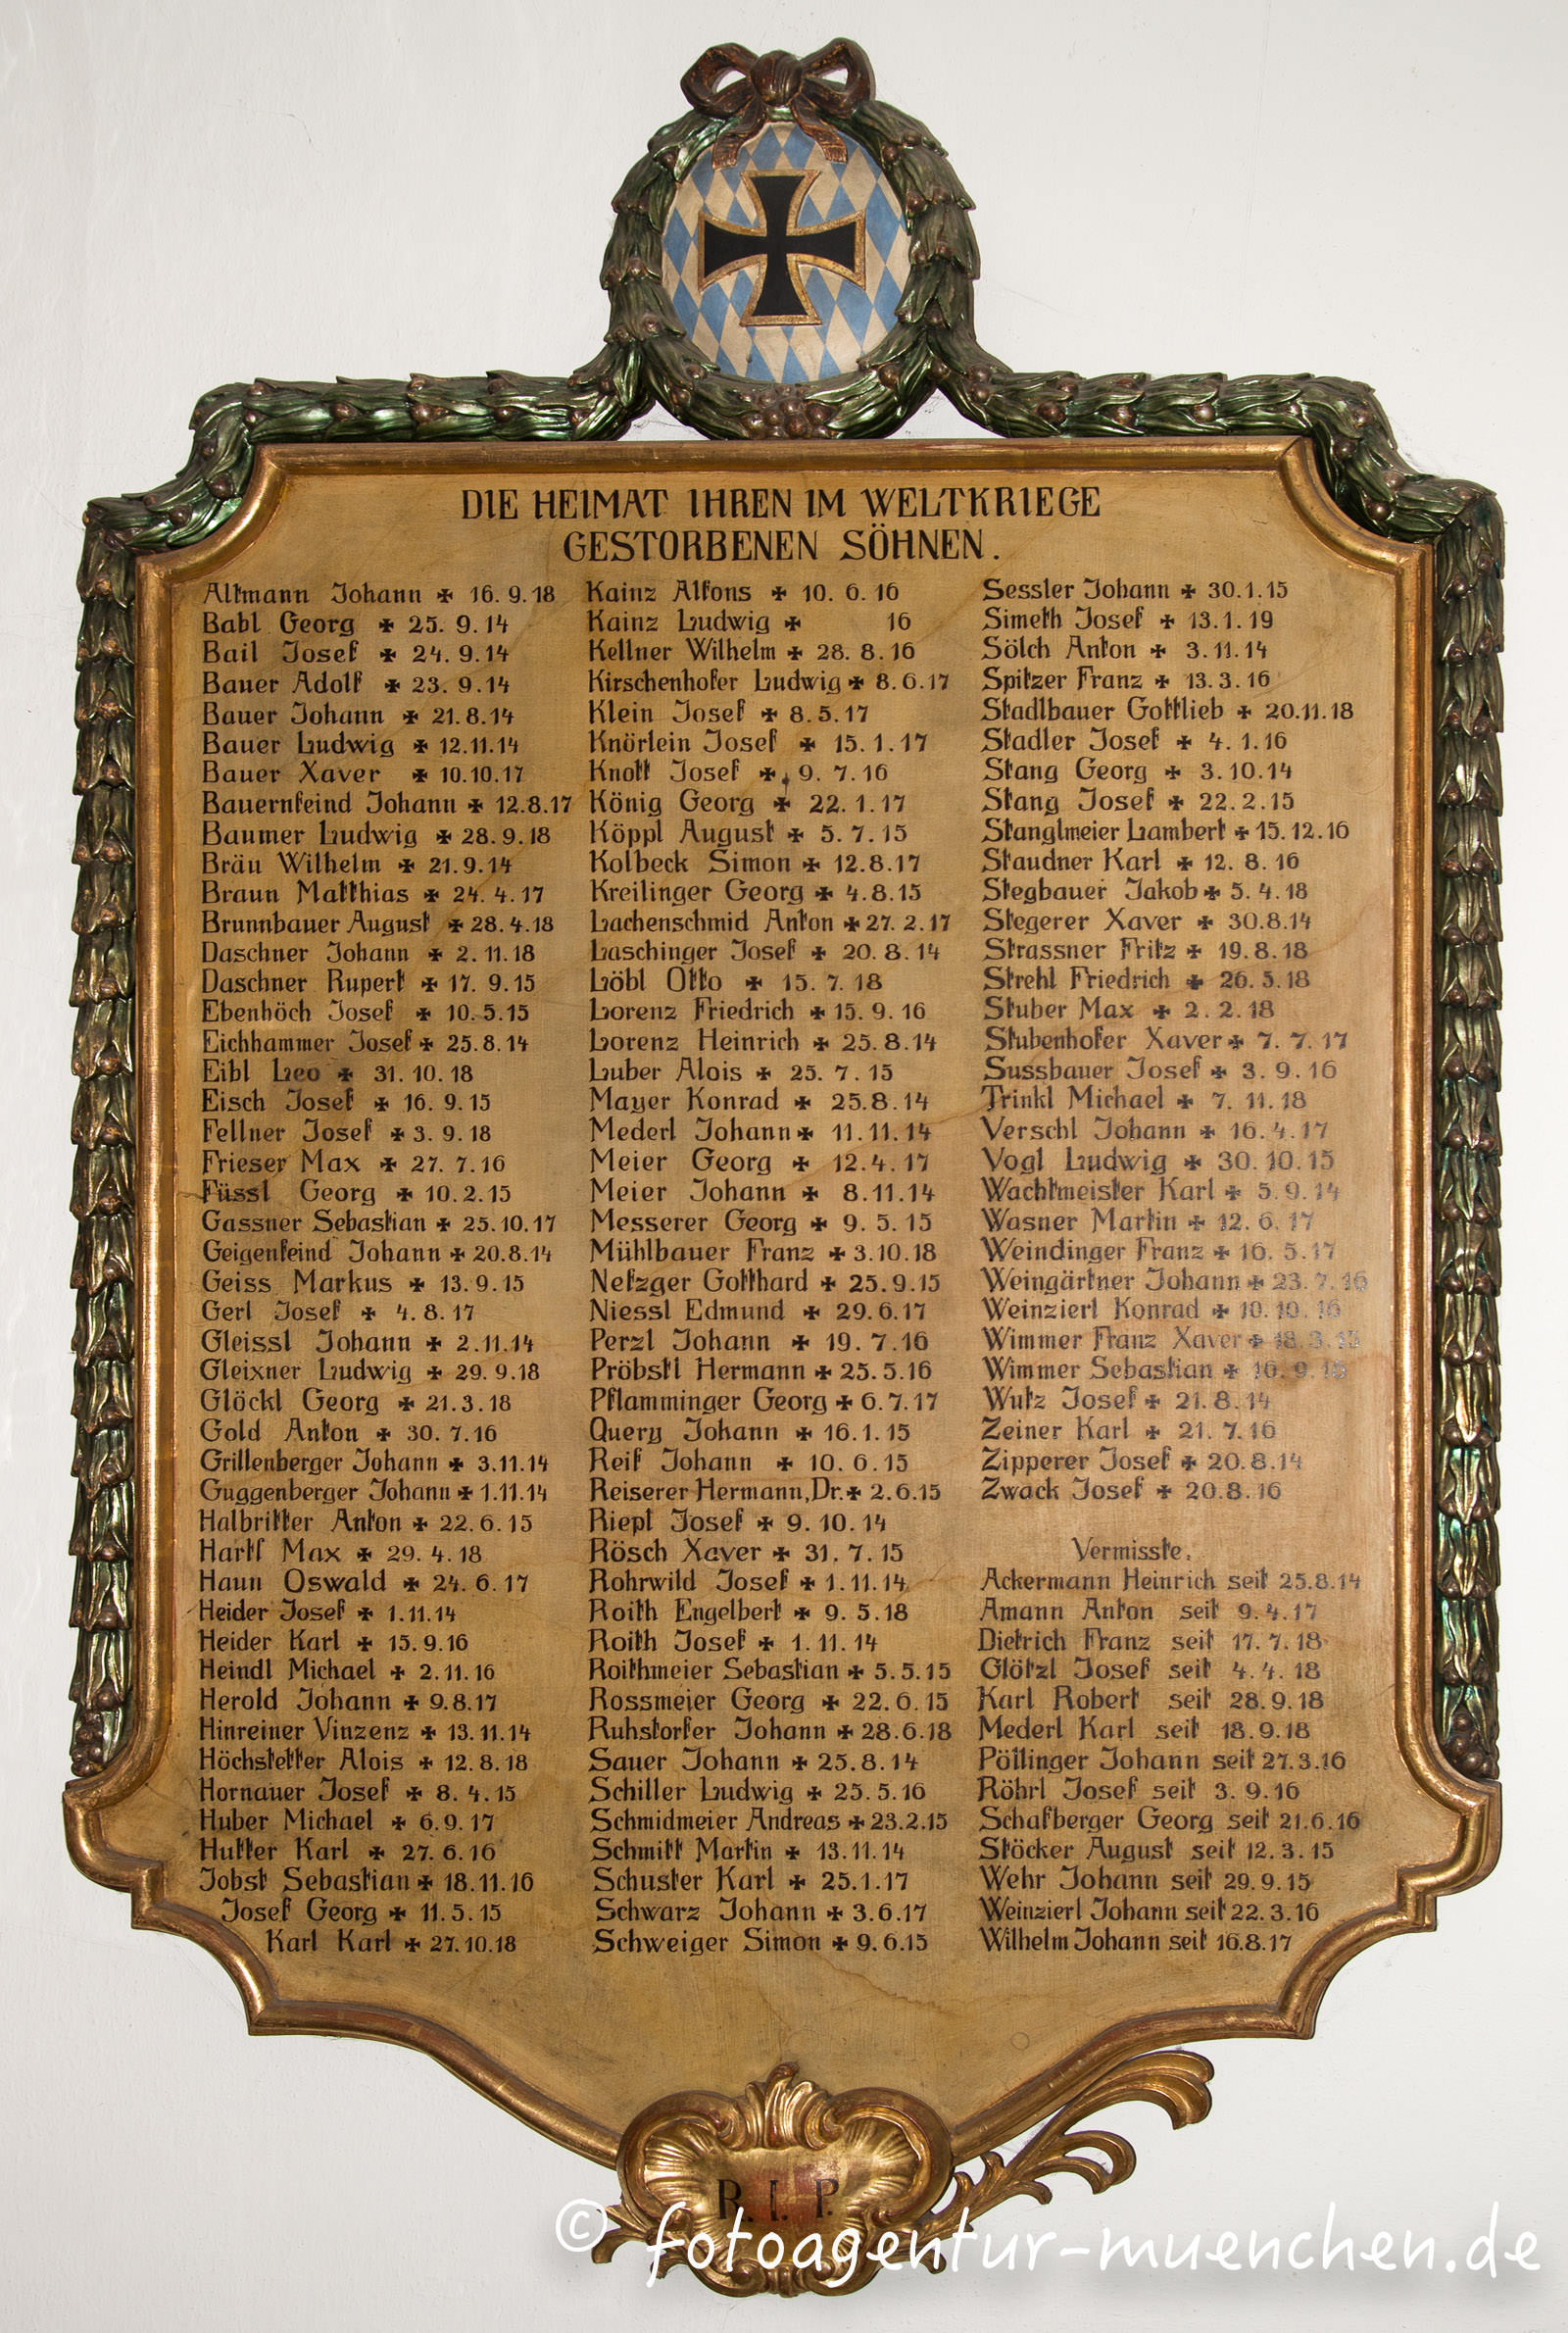 DIE HEIMAT IHREN IM WELTKRIEGE
GESTORBENEN SÖHNEN.
Altmann Johann ✠ 16.9.18
Babl Georg ✠ 25.9.14
Bail Josef ✠ 24.9.14
Bauer Adolf ✠ 23.9.14
Bauer Johann ✠ 21.8.14
Bauer Ludwig ✠ 12.11.14
Bauer Xaver ✠ 10.10.17
Bauernfeind Johann ✠ 12.8.17
Baumer Ludwig ✠ 28.9.18
Bräu Wilhelm ✠ 21.9.14
Braun Matthias ✠ 24.4.17
Brunnbauer August ✠ 28.4.18
Daschner Johann ✠ 2.11.18
Daschner Rupert ✠ 17.9.15
Ebenhöch Josef ✠ 10.5.15
Eichhammer Josef ✠ 25.8.14
Eibl Leo ✠ 31.10.18
Eisch Josef ✠ 16.9.15
Fellner Josef ✠ 3.9.18
Frieser Max ✠ 27.7.16
Füssl Georg ✠ 10.2.15
Gassner Sebastian ✠ 25.10.17
Geigenfeind Johann ✠ 20.8.14
Geiss Markus ✠ 13.9.15
Gerl Josef ✠ 4.8.17
Gleissl Johann ✠ 2.11.14
Gleixner Ludwig ✠ 29.9.18
Glöckl Georg ✠ 21.3.18
Gold Anton ✠ 30.7.16
Grillenberger Johann ✠ 3.11.14
Guggenberger Johann ✠ 1.11.14
Halbritter Anton ✠ 22.6.15
Hartl Max ✠ 29.4.18
Haun Oswald ✠ 24.6.17
Heider Josef ✠ 1.11.14
Heider Karl ✠ 15.9.16
Heindl Michael ✠ 2.11.16
Herold Johann ✠ 9.8.17
Hinreiner Vinzenz ✠ 13.11.14
Höchstetter Alois ✠ 12.8.18
Hornauer Josef ✠ 8.4.15
Huber Michael ✠ 6.9.17
Hutter Karl ✠ 27.6.16
Jobst Sebastian ✠ 18.11.16
Josef Georg ✠ 11.5.15
Karl Karl ✠ 27.10.18
Kainz Alfons ✠ 10.6.16
Kainz Ludwig ✠ 16
Kellner Wilhelm ✠ 28.8.16
Kirschenhofer Ludwig ✠ 8.6.17
Klein Josef ✠ 8.5.17
Knörlein Josef ✠ 15.1.17
Knott Josef ✠ 9.7.16
König Georg ✠ 22.1.17
Köppl August ✠ 5.7.15
Kolbeck Simon ✠ 12.8.17
Kreilinger Georg ✠ 4.8.15
Lachenschmid Anton ✠ 27.2.17
Laschinger Josef ✠ 20.8.14
Löbl Otto ✠ 15.7.18
Lorenz Friedrich ✠ 15.9.16
Lorenz Heinrich ✠ 25.8.14
Luber Alois ✠ 25.7.15
Mayer Konrad ✠ 25.8.14
Mederl Johann ✠ 11.11.14
Meier Georg ✠ 12.4.17
Meier Johann ✠ 8.11.14
Messerer Georg ✠ 9.5.15
Mühlbauer Franz ✠ 3.10.18
Netzger Gotthard ✠ 25.9.15
Niessl Edmund ✠ 29.6.17
Perzl Johann ✠ 19.7.16
Pröbstl Hermann ✠ 25.5.16
Pflamminger Georg ✠ 6.7.17
Query Johann ✠ 16.1.15
Reif Johann ✠ 10.6.15
Reiserer Hermann, Dr. ✠ 2.6.15
Riepl Josef ✠ 9.10.14
Rösch Xaver ✠ 31.7.15
Rohrwild Josef ✠ 1.11.14
Roith Engelbert ✠ 9.5.18
Roith Josef ✠ 1.11.14
Roithmeier Sebastian ✠ 5.5.15
Rossmeier Georg ✠ 22.6.15
Ruhstorfer Johann ✠ 28.6.18
Sauer Johann ✠ 25.8.14
Schiller Ludwig ✠ 25.5.16
Schmidmeier Andreas ✠ 23.2.15
Schmitt Martin ✠ 13.11.14
Schuster Karl ✠ 25.1.17
Schwarz Johann ✠ 3.6.17
Schweiger Simon ✠ 9.6.15
Sessler Johann ✠ 30.1.15
Simeth Josef ✠ 13.1.19
Sölch Anton ✠ 3.11.14
Spitzer Franz ✠ 13.3.16
Stadlbauer Gottlieb ✠ 20.11.18
Stadler Josef ✠ 4.1.16
Stang Georg ✠ 3.10.14
Stang Josef ✠ 22.2.15
Stanglmeier Lambert ✠ 15.12.16
Staudner Karl ✠ 12.8.16
Stegbauer Jakob ✠ 5.4.18
Stegerer Xaver ✠ 30.8.14
Strassner Fritz ✠ 19.8.18
Strehl Friedrich ✠ 26.5.18
Stuber Max ✠ 2.2.18
Stubenhofer Xaver ✠ 7.7.17
Sussbauer Josef ✠ 3.9.16
Trinkl Michael ✠ 7.11.18
Verschl Johann ✠ 16.4.17
Vogl Ludwig ✠ 30.10.15
Wachtmeister Karl ✠ 5.9.14
Wasner Martin ✠ 12.6.17
Weindinger Franz ✠ 16.5.17
Weingärtner Johann ✠ 23.7.16
Weinzierl Konrad ✠ 10.10.16
Wimmer Franz Xaver ✠
Wimmer Sebastian ✠
Wutz Josef ✠ 21.8.14
Zeiner Karl ✠ 21.7.16
Zipperer Josef ✠ 20.8.14
Zwack Josef ✠ 20.8.16
Vermisste.
Ackermann Heinrich seit 25.8.14
Amann Anton seit 9.4.17
Dietrich Franz seit 17.7.18
Glötzl Josef seit 4.4.18
Karl Robert seit 28.9.18
Mederl Karl seit 18.9.18
Pöllinger Johann seit 27.3.16
Röhrl Josef seit 3.9.16
Schafberger Georg seit 21.6.16
Stöcker August seit 12.3.15
Wehr Johann seit 29.9.15
Weinzierl Johann seit 22.3.16
Wilhelm Johann seit 16.8.17
R. I. P.
© fotoagentur-muenchen.de